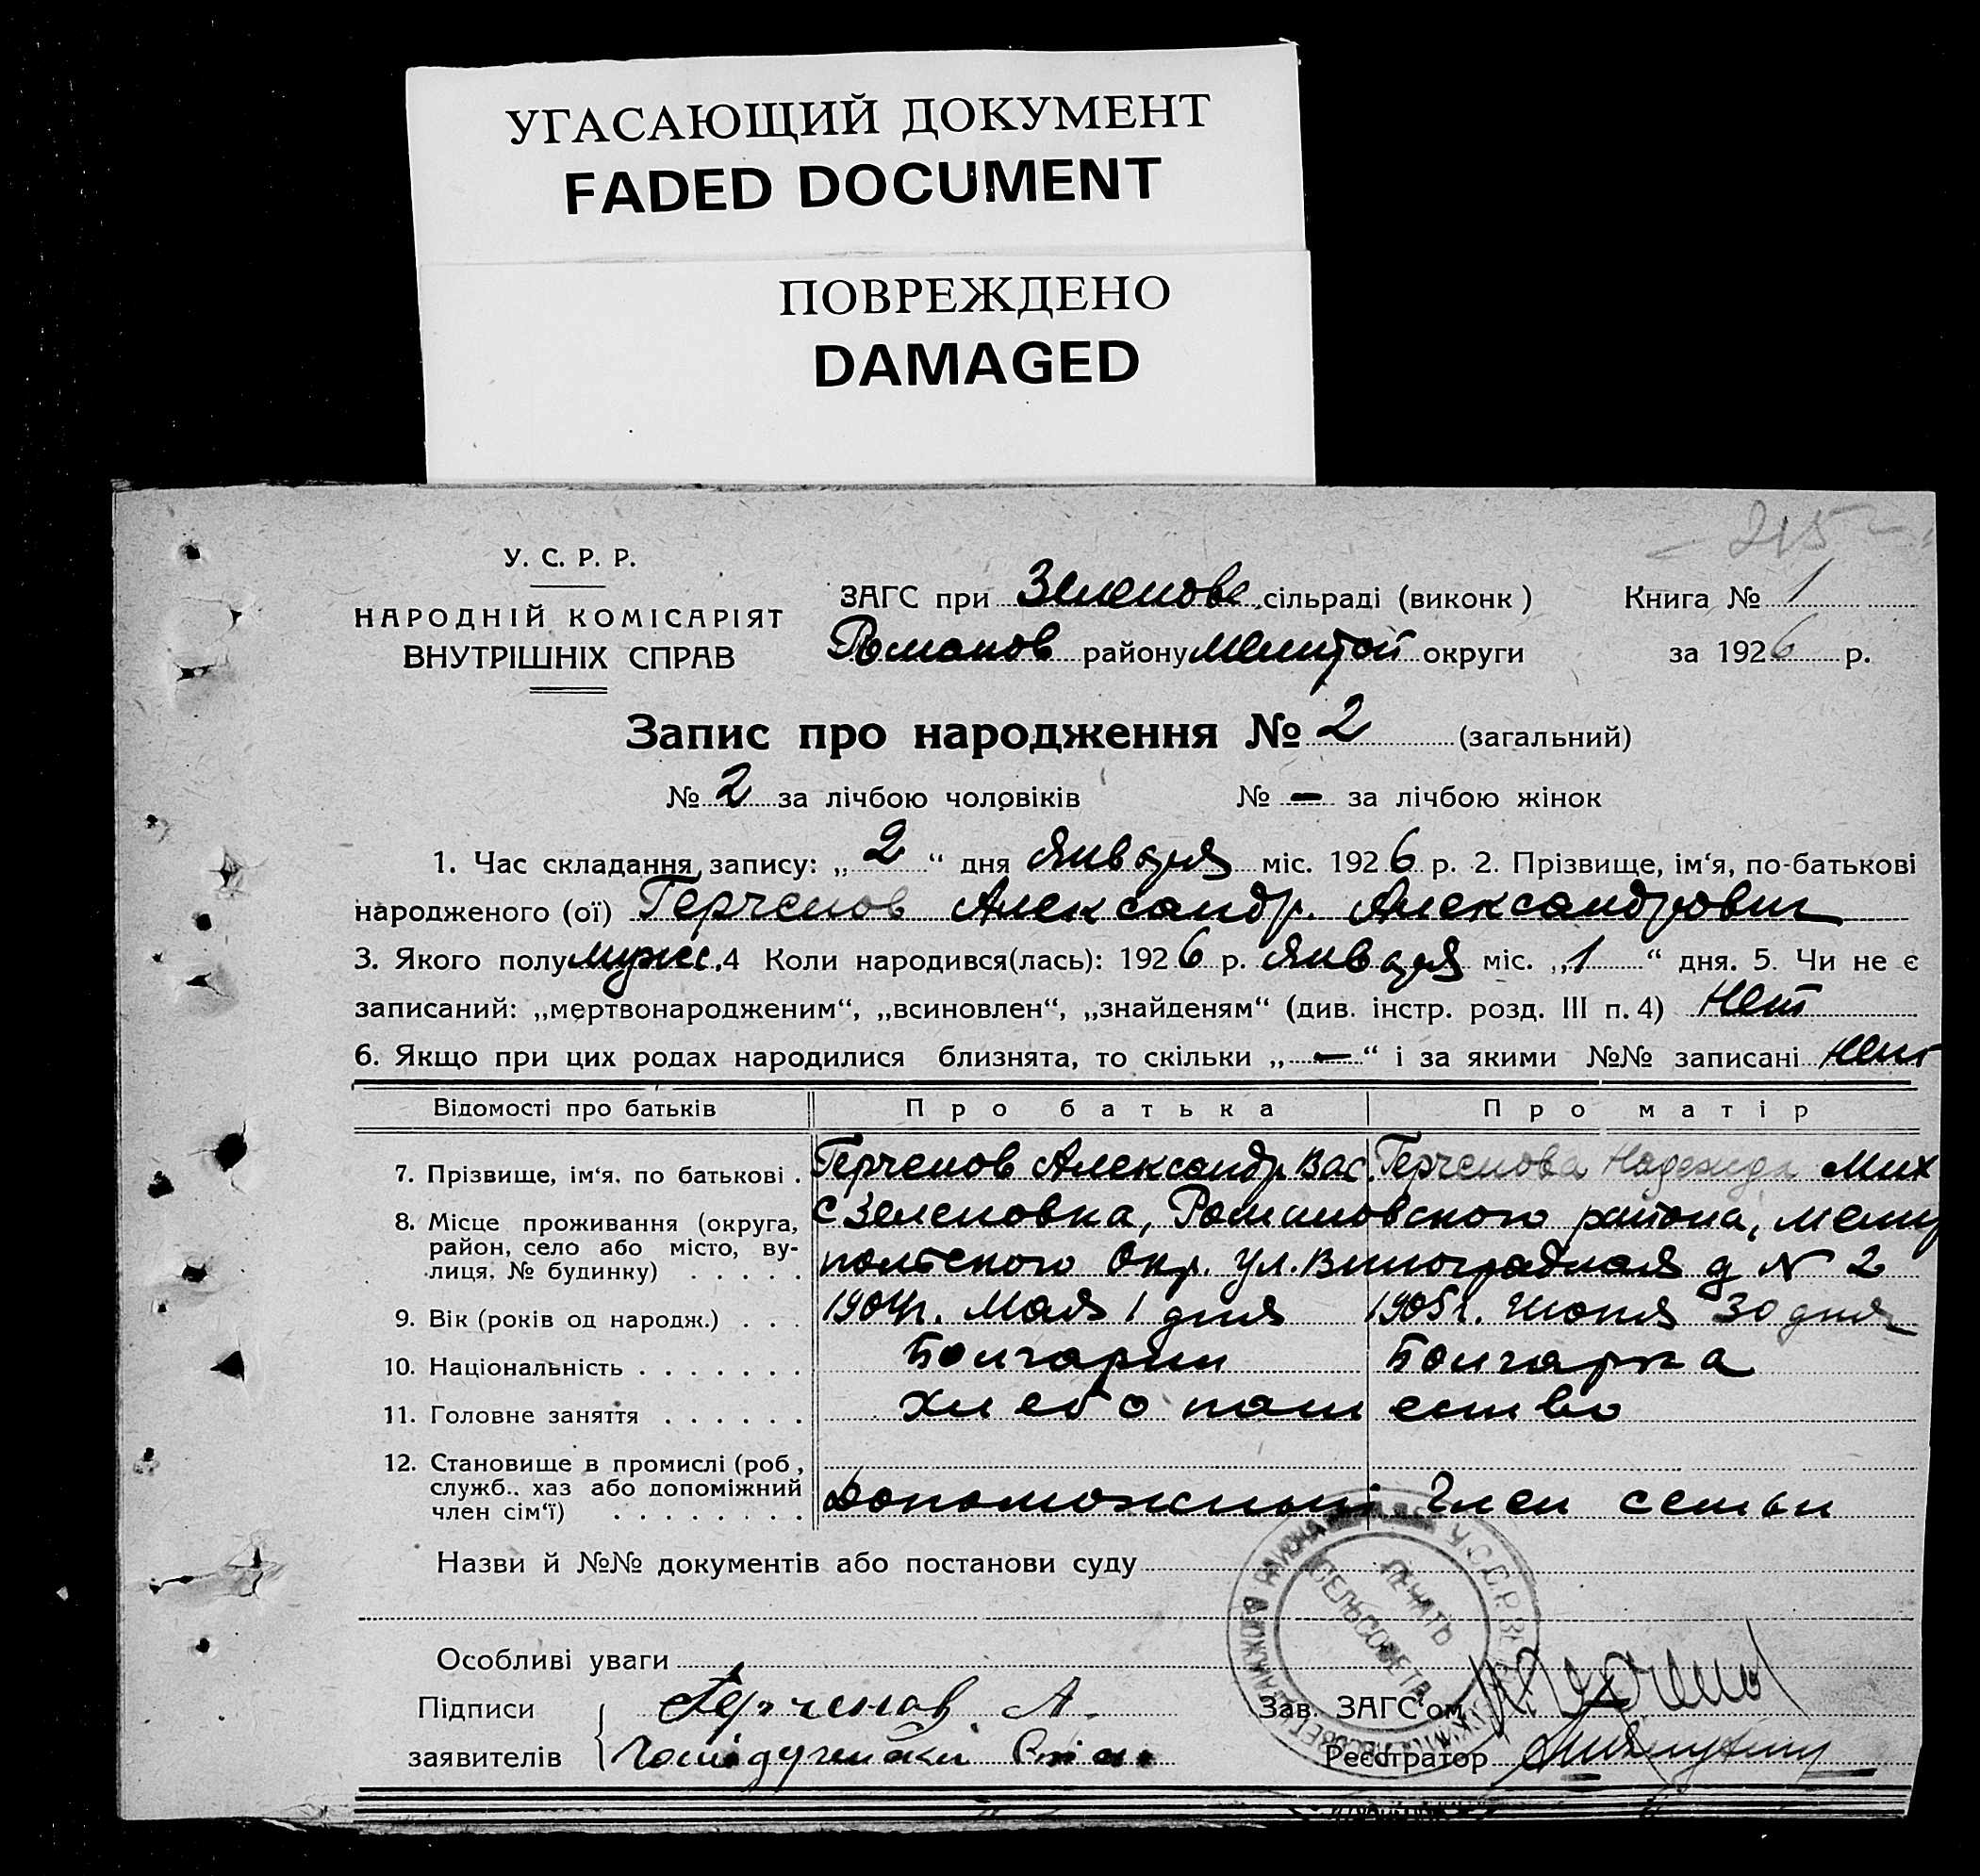 УГАСАЮЩИЙ ДОКУМЕНТ
FADED DOCUMENT
ПОВРЕЖДЕНО
DAMAGED
215
У. С. Р. Р.
НАРОДНІЙ КОМІСАРІЯТ
ВНУТРІШНІХ СПРАВ
ЗАГС при Зеленовс. сільраді (виконк)
Романов району Мелитой округи
Книга № 1
за 1926 р.
Запис про народження № 2 (загальний)
№ 2 за лічбою чоловіків № — за лічбою жінок
1. Час складання запису: „ 2 “ дня Января міс. 1926 р. 2. Прізвище, ім‘я, по-батькові
народженого (ої) Герченов Александр. Александрович
3. Якого полу мужс. 4 Коли народився(лась): 1926 р. Января міс. „1 “ дня. 5. Чи не є
записаний: „мертвонародженим“, „всиновлен“, „знайденям“ (див. інстр. розд. III п. 4) Нет
6. Якщо при цих родах народилися близнята, то скільки „ — “ і за якими №№ записані нет
Відомості про батьків Про батька Про матір
7. Прізвище, ім‘я, по батькові . Герченов Александр Вас. Герченова Надежда Мих
8. Місце проживання (округа, район, село або місто, вулиця, № будинку) . . . . . С Зеленовка, Романовского района, Мели
польского Окр. ул. Виноградная д N 2
9. Вік (років од народж.) . . . 1904г. Мая 1 дня 1905г. Июня 30 дня
10. Національність . . . . . . . Болгарин Болгарка
11. Головне заняття . . . . . . хлебопашество
12. Становище в промислі (роб, служб.. хаз або допоміжний член сім‘ї) . . . . . . . . Допоможный Член семьи
Назви й №№ документів або постанови суду
Особливі уваги
Підписи Герченов А.
заявителів
Зав. ЗАГС‘ом
Реєстратор
ПЕЧАТЬ
СЕЛЬСОВЕТА
У.С.С.Р.
РАЙОНА